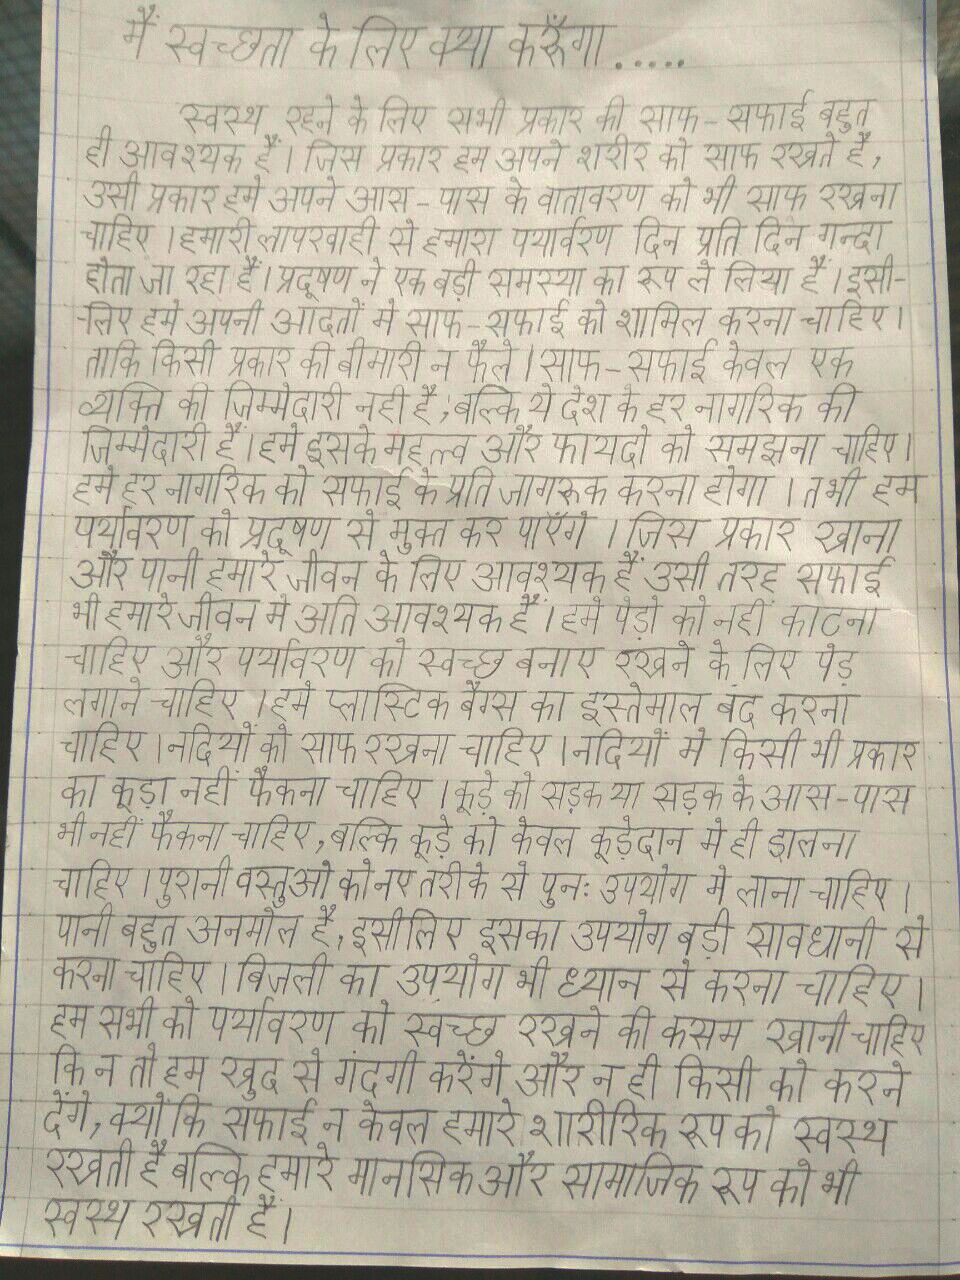 मैं स्वच्छता के लिए क्या करूँगा .....
स्वस्थ रहने के लिए सभी प्रकार की साफ-सफाई बहुत
ही आवश्यक हैं। जिस प्रकार हम अपने शरीर को साफ रखते है,
उसी प्रकार हमे अपने आस-पास के वातावरण को भी साफ रखना
चाहिए। हमारी लापरवाही से हमारा पर्यावरण दिन प्रति दिन गन्दा
होता जा रहा हैं। प्रदूषण ने एक बड़ी समस्या का रूप ले लिया हैं। इसी-
-लिए हमे अपनी आदतों मे साफ-सफाई को शामिल करना चाहिए।
ताकि किसी प्रकार की बीमारी न फैले। साफ-सफाई केवल एक
व्यक्ति की जिम्मेदारी नही है, बल्कि ये देश के हर नागरिक की
जिम्मेदारी हैं। हमे इसके महत्त्व और फायदो को समझना चाहिए।
हमे हर नागरिक को सफाई के प्रति जागरूक करना होगा। तभी हम
पर्यावरण को प्रदूषण से मुक्त कर पाएँगे। जिस प्रकार खाना
और पानी हमारे जीवन के लिए आवश्यक हैं उसी तरह सफाई
भी हमारे जीवन मे अति आवश्यक हैं। हमे पेड़ो को नहीं काटना
चाहिए और पर्यावरण को स्वच्छ बनाए रखने के लिए पेड़
लगाने चाहिए। हमे प्लास्टिक बैग्स का इस्तेमाल बंद करना
चाहिए। नदियों को साफ रखना चाहिए। नदियों मे किसी भी प्रकार
का कूड़ा नहीं फैकना चाहिए। कूड़े को सड़क या सड़क के आस-पास
भी नहीं फैकना चाहिए, बल्कि कूड़े को केवल कूड़ेदान मे ही डालना
चाहिए। पुरानी वस्तुओ को नए तरीके से पुनः उपयोग मे लाना चाहिए।
पानी बहुत अनमोल है, इसीलिए इसका उपयोग बड़ी सावधानी से
करना चाहिए। बिजली का उपयोग भी ध्यान से करना चाहिए।
हम सभी को पर्यावरण को स्वच्छ रखने की कसम खानी चाहिए
कि न तो हम खुद से गंदगी करेंगे और न ही किसी को करने
देंगे, क्योंकि सफाई न केवल हमारे शारीरिक रूप को स्वस्थ
रखती हैं बल्कि हमारे मानसिक और सामाजिक रूप को भी
स्वस्थ रखती हैं।